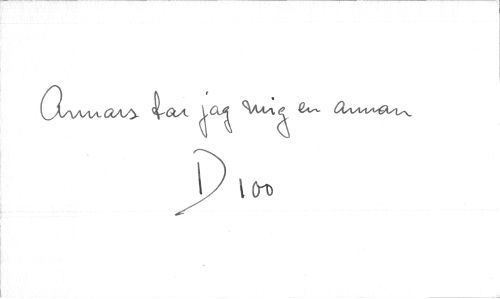 Annars tar jag mig en annan
D 100